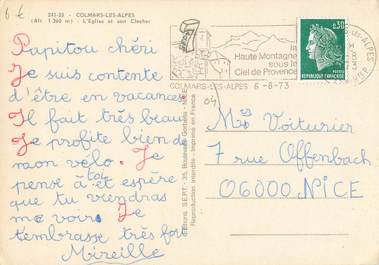 6 €
241-20 - COLMARS-LES-ALPES
(Alt. 1 260 m) - L'Eglise et son Clocher
Papitou chéri
Je suis contente
d'être en vacances
Il fait très beau
Je profite bien de
mon vélo. Je
pense à toi et espère
que tu viendras
me voir. Je
t'embrasse très fort
Mireille
Editions S.E.P.T. - 35, Boulevard Gorbella - NICE
Reproduction interdite - Imprimé en France
la
Haute Montagne
sous le
Ciel de Provence
COLMARS-LES-ALPES 6-8-73
0,30
REPUBLIQUE FRANÇAISE
04
Mr Voiturier
7 rue Offenbach
06000 NICE